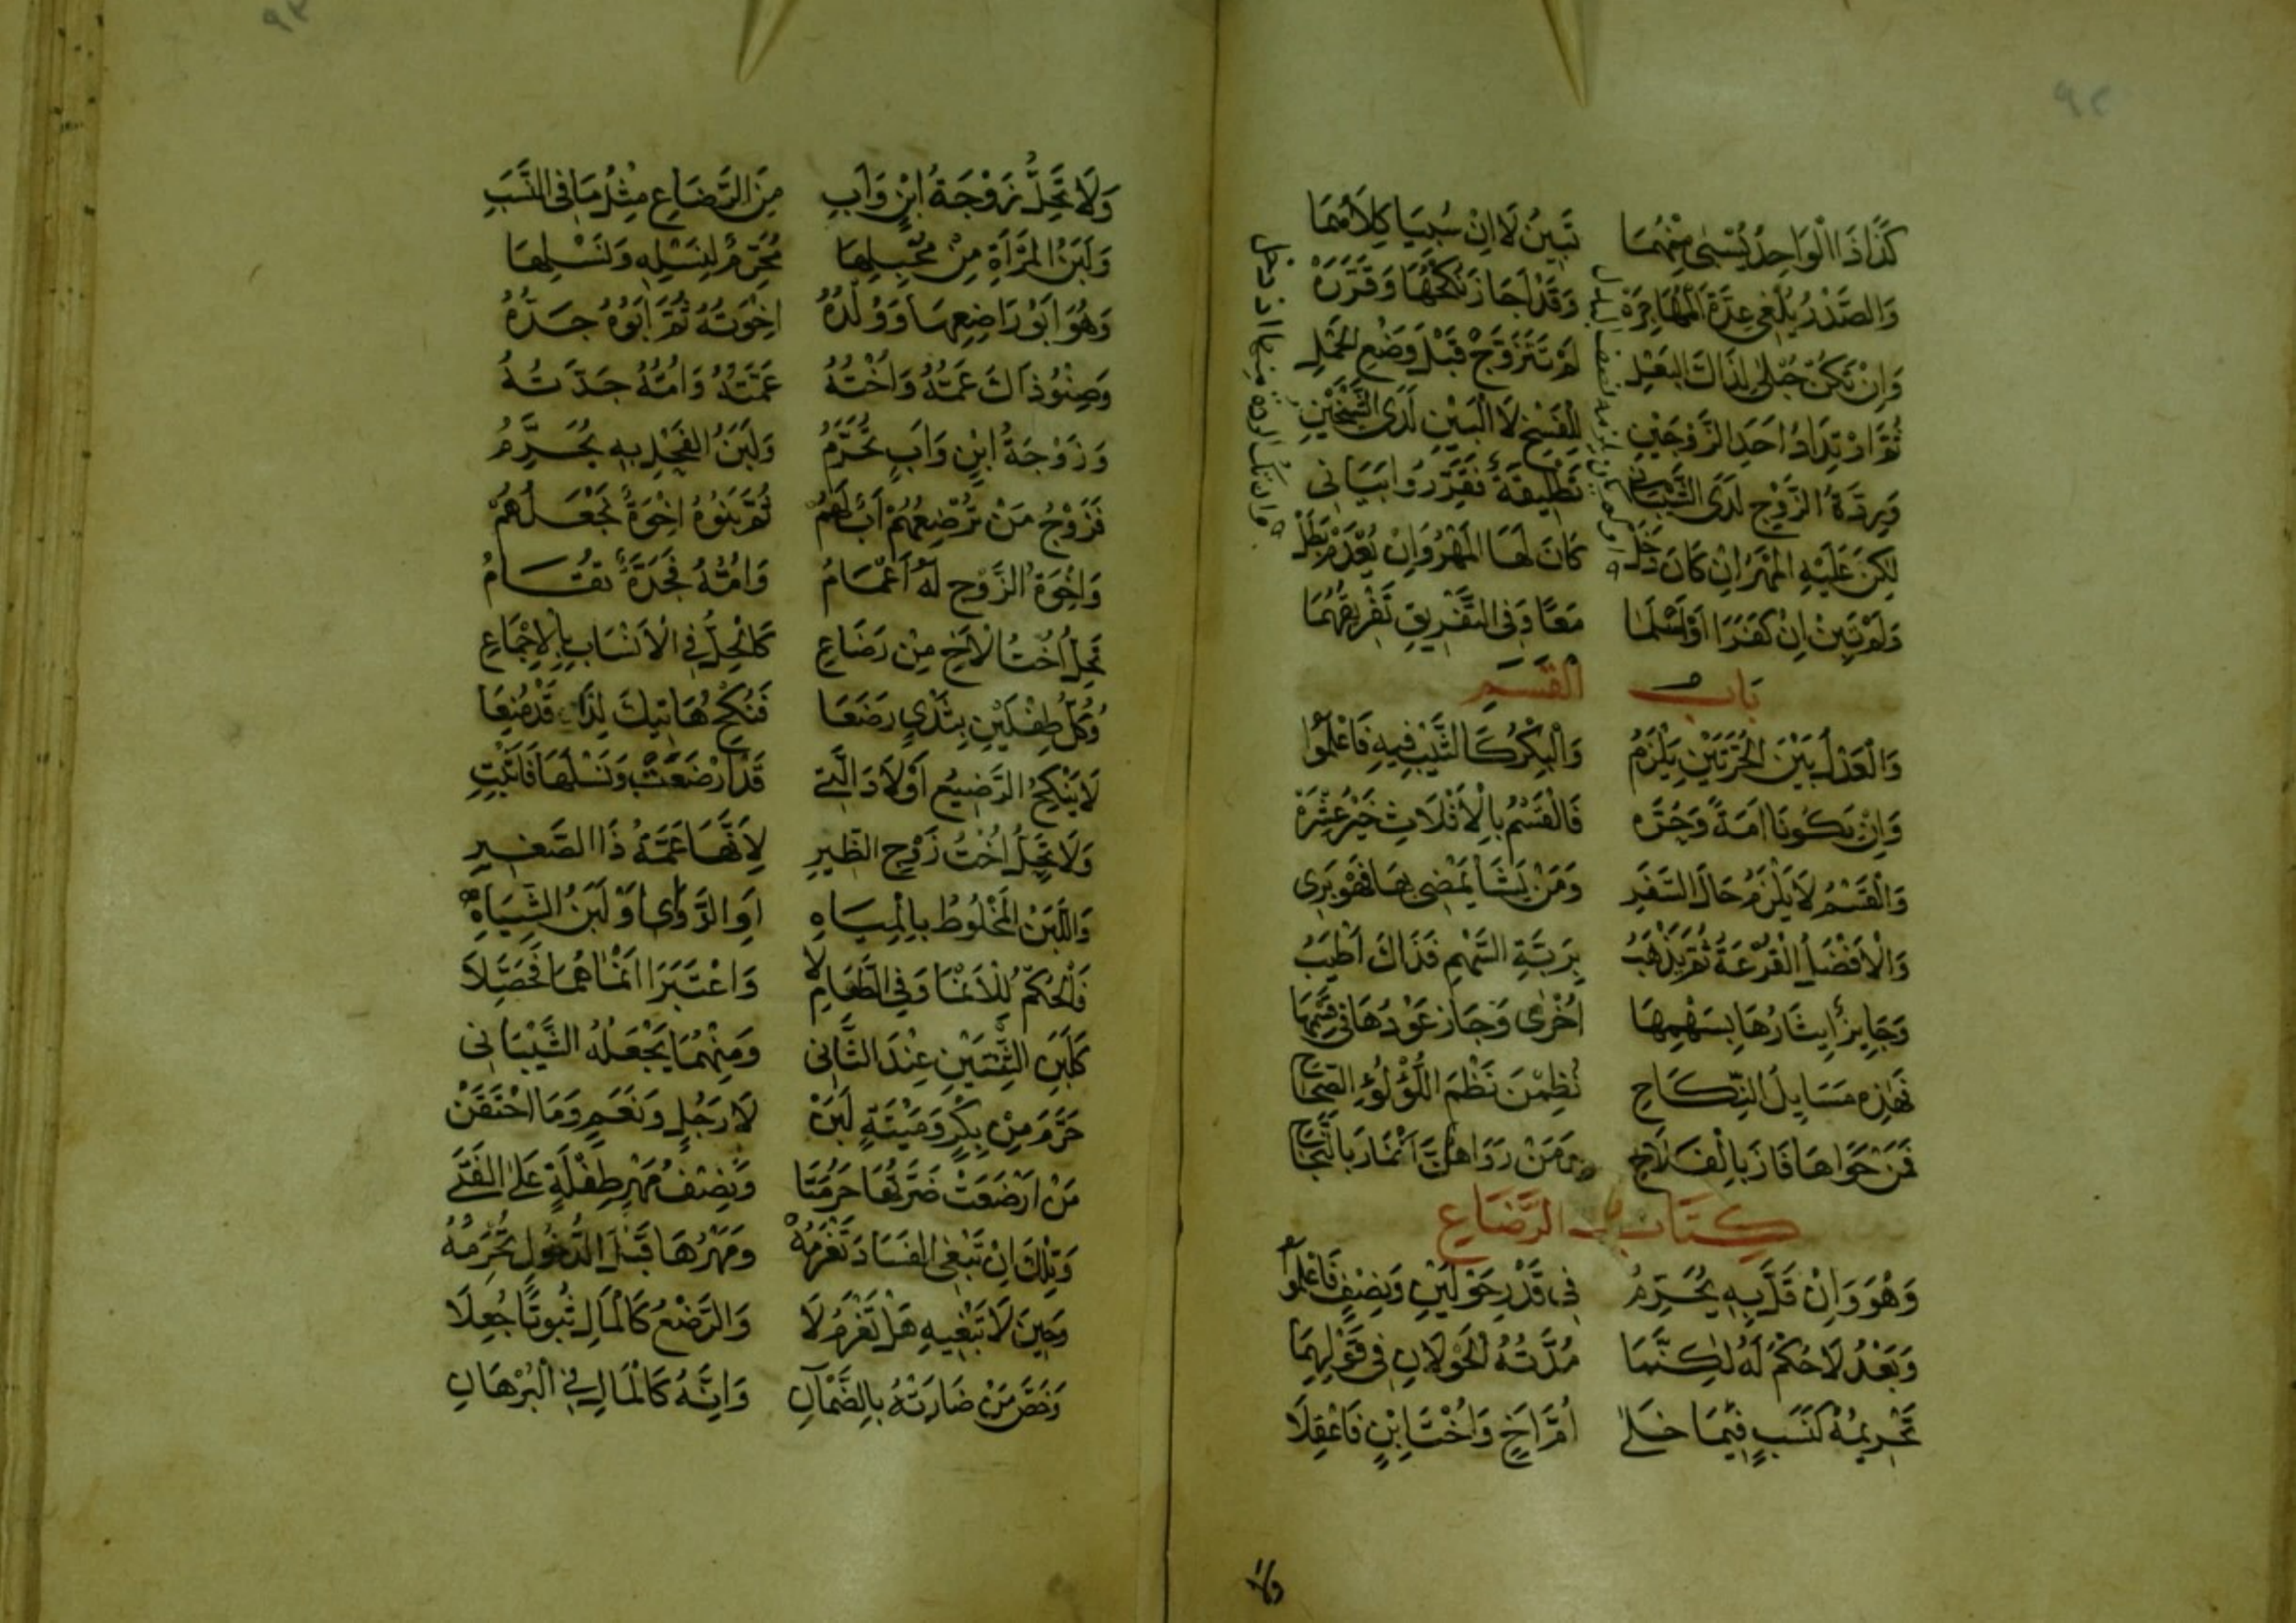 كَذَا اذَا الْوَاحِدُ يُسْبَى مِنْهُمَا تَبِيْنُ لَا اِنْ سُبِيَا كِلَاهُمَا
وَالصَّدْرُ يُلْغِي عِدَّةَ الْمُهَاجِرَهْ وَقَدْ اَجَازَ نُكْحَهَا وَقَرَّرَهْ
وَاِنْ تَكُنْ حُبْلَى لِذَاكَ الْبَعْلِ لَمْ تَتَزَوَّجْ قَبْلَ وَضْعِ الْحَمْلِ
ثُمَّ ارْتِدَادُ اَحَدِ الزَّوْجَيْنِ لِلْفَسْخِ لَا الْبَيْنِ لَدَى الشَّيْخَيْنِ
وَرِدَّةُ الزَّوْجِ لَدَى الشَّيْبَانِي تَطْلِيْقَةٌ تَقَرَّرُوا بَيَانِي
لٰكِنْ عَلَيْهِ الْمَهْرُ اِنْ كَانَ دَخَلْ كَانَ لَهَا الْمَهْرُ وَاِنْ يُعْدَمْ بَطَلْ
وَلَمْ تَبِنْ اِنْ كَفَرَا اَوْ اَسْلَمَا مَعًا وَفِي التَّفْرِيْقِ تَفْرِيْقُهُمَا
بَاب الْقَسْمِ
وَالْعَدْلُ بَيْنَ الْحُرَّتَيْنِ يَلْزَمُ وَالْبِكْرُ كَالثَّيِّبِ فِيْهِ فَاعْلَمُوْا
وَاِنْ يَكُوْنَا اَمَةً وَحُرَّه فَالْقَسْمُ بِالْاَثْلَاثِ خَيْرُ عِشْرَهْ
وَالْقَسْمُ لَا يَلْزَمُ حَالَ السَّفَرِ وَمَنْ يَشَا يَمْضِى بِهَا فَهْوَ بَرِى
وَالْاَفْضَلُ الْقُرْعَةُ ثُمَّ يَذْهَبُ بِرَبَّةِ السَّهْمِ فَذَاكَ اَطْيَبُ
وَجَايِزٌ اِيثَارُهَا بِسَهْمِهَا اُخْرٰى وَجَازَ عَوْدُهَا فِي قَسْمِهَا
فَهٰذِهِ مَسَايِلُ النِّكَاحِ نُظِمْنَ نَظْمَ اللُّؤْلُؤِ الصِّحَاحِ
فَمَنْ حَوَاهَا فَازَ بِالْفَلَاحِ وَمَنْ رَوَاهُنَّ
كِتَاب الرَّضَاعِ
وَهْوَ وَاِنْ قَلَّ بِهِ يُحَرَّمُ فِي قَدْرِ حَوْلَيْنِ وَنِصْفٍ فَاعْلَمُوْا
وَبَعْدُ لَا حُكْمُ لَهُ لٰكِنَّمَا مُدَّتُهُ الْحَوْلَانِ فِي قَوْلِهِمَا
تَحْرِيْمُهُ كَنَسَبٍ فِيْمَا خَلَا اُمَّ اَخٍ وَاُخْتَ ابْنٍ فَاعْقِلَا
ولا
وَلَا تَحِلُّ زَوْجَةُ ابْنٍ وَابِ مِنَ الرَّضَاعِ مِثْلُ مَا فِي النَّسَبِ
وَلَبَنُ الْمَرْأَةِ مِنْ مُحْبِلِهَا مُحَرِّمٌ لِنَسْلِهِ وَنَسْلِهَا
وَهُوَ اَبُوْ رَاضِعِهَا وَوُلْدُهُ اِخْوَتُهُ ثُمَّ اَبُوْهُ جَدُّهُ
وَصِنْوُ ذَاكَ عَمُّهُ وَاُخْتُهُ عَمَّتُهُ وَاُمُّهُ جَدَّتُهُ
وَزَوْجَةُ ابْنٍ وَابٍ تُحَرَّمُ وَلَبَنُ الْفَحْلِ بِهِ يُحَرَّمُ
فَزَوْجُ مَنْ تُرْضِعُهُمْ اَبٌ لَهُمْ ثُمَّ بَنُوْهُ اِخْوَةٌ تَجْعَلُهُمْ
وَاِخْوَةُ الزَّوْجِ لَهُ اَعْمَامُ وَاُمُّهُ فَجَدَّةٌ تُقَامُ
تَحِلُّ اُخْتُ الْاَخِ مِنْ رَضَاعِ كَالْحِلِّ فِي الْاَنْسَابِ بِالْاِجْمَاعِ
وَكُلُّ طِفْلَيْنِ بِثَدْيٍ رَضَعَا فَنُكْحُ هَاتِيْكَ لِذَا قَدْ مُنِعَا
لَا يَنْكِحُ الرَّضِيْعُ اَوْلَادَ الَّتِي قَدْ اَرْضَعَتْ وَنَسْلَهَا فَاثْبِتِ
وَلَا تَحِلُّ اُخْتُ زَوْجِ الظِّيْرِ لِاَنَّهَا عَمَّةُ ذَا الصَّغِيْرِ
وَاللَّبَنُ الْمَخْلُوْطُ بِالْمِيَاهِ اَوِ الدَّوَاىِ اَوْ لَبَنِ الشِّيَاهِ
فَالْحُكْمُ لِلْاَنْمَا وَفِي الطَّعَامِ لَا وَاعْتَبَرَا اَنْمَاهُمَا فَحَصِّلَا
كَلَبَنِ الثِّنْتَيْنِ عِنْدَ الثَّانِي وَمِنْهُمَا يَجْعَلُهُ الشَّيْبَانِي
حَرَّمَ مِنْ بِكْرٍ وَمَيْتَةٍ لَبَنْ لَا رَجُلٍ وَنَعَمٍ وَمَا احْتَقَنْ
مَنْ اَرْضَعَتْ ضَرَّتَهَا حَرُمَتَا وَنِصْفُ مَهْرِ طِفْلَةٍ عَلَى الْفَتَى
وَتِلْكَ اِنْ تَبْغِي الْفَسَادَ تَغْرَمُهْ وَمَهْرُهَا قَبْلَ الدُّخُوْلِ تُحْرَمُهْ
وَحِيْنَ لَا تَبْغِيْهِ هَلْ تَغْرَمُ لَا وَالرَّضْعُ كَالْمَالِ ثُبُوْتًا جُعِلَا
وَخَصَّ مَنْ ضَارَتْهُ بِالضَّمَانِ وَاِنَّهُ كَالْمَالِ فِي الْبُرْهَانِ